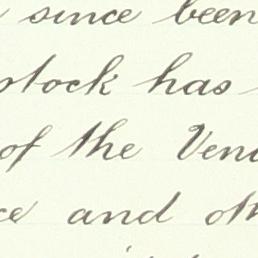 since been
stock has
of the Vend
ce and oth